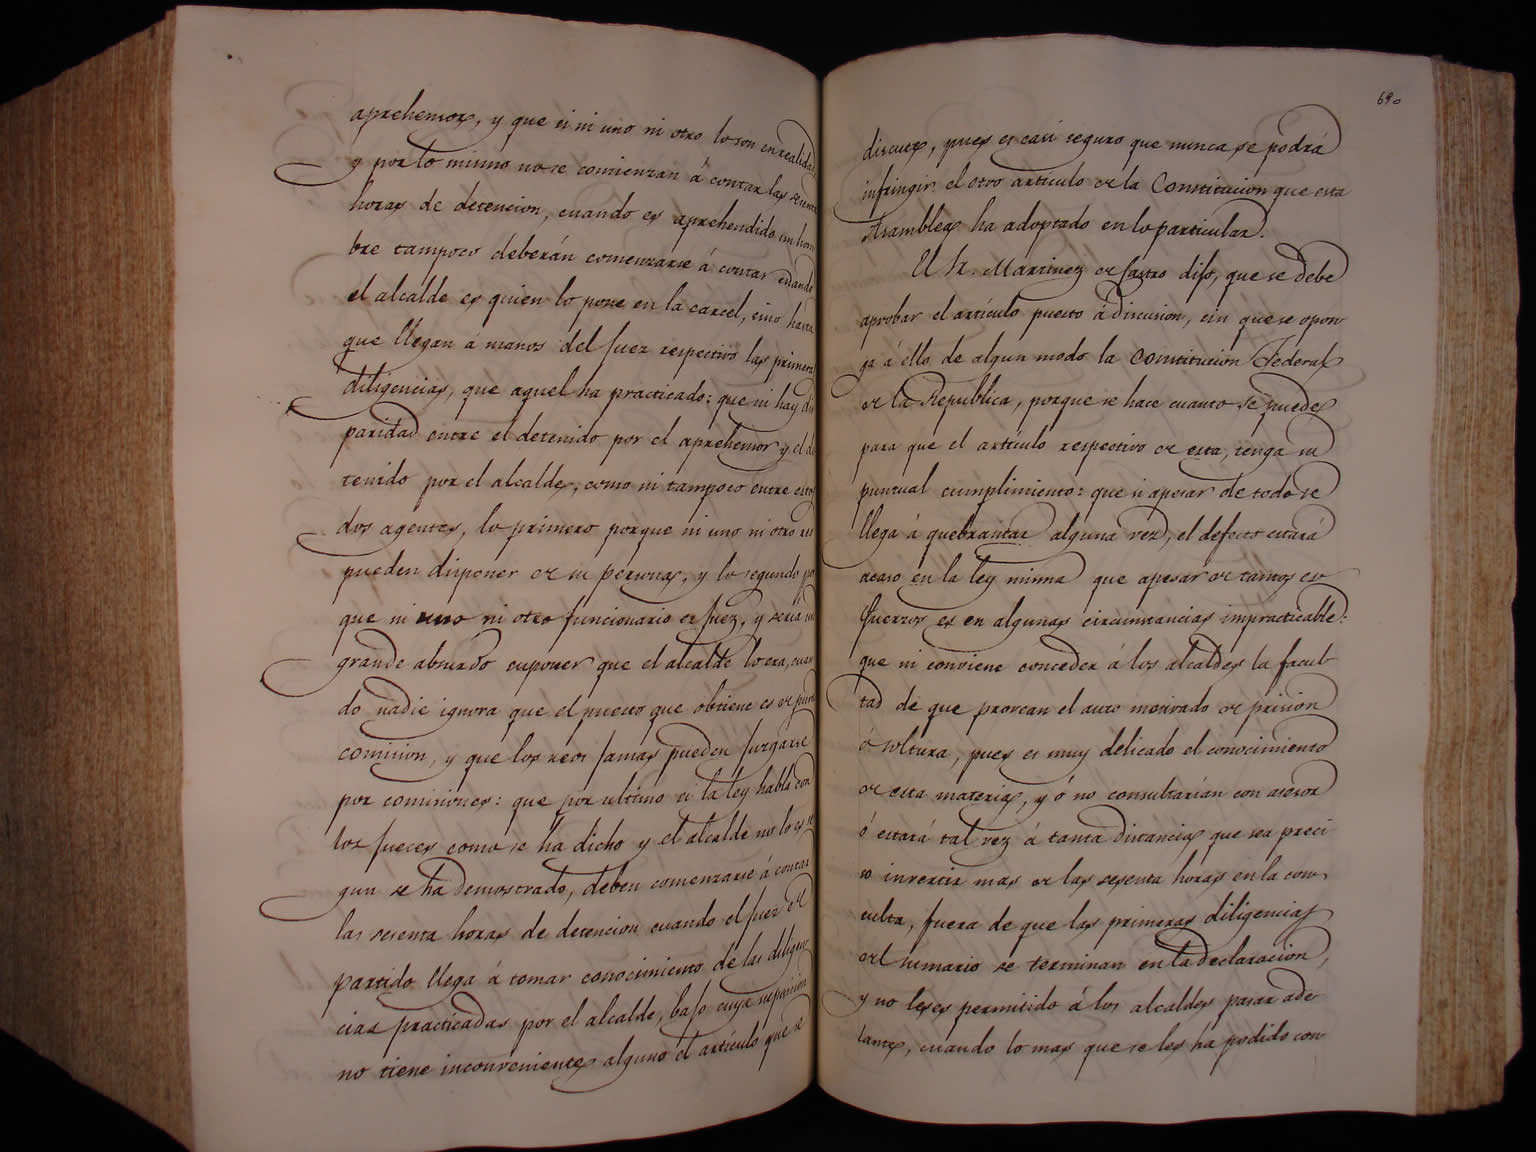 aprehensor, y que si ni uno ni otro lo son en realidad,
y por lo mismo no se comienzan á contar las sesenta
horas de detencion, cuando es aprehendido un hom
bre tampoco deberán comenzarse á contar cuando
el alcalde es quien lo pone en la carcel, sino hasta
que llegan á manos del juez respectivo las primeras
diligencias, que aquel ha practicado: que ni hay dis
paridad entre el detenido por el aprehensor y el de
tenido por el alcalde, como ni tampoco entre estos
dos agentes, lo primero porque ni uno ni otro reo
pueden disponer de su persona, y lo segundo por
que ni uno ni otro funcionario es juez, y sería un
grande absurdo suponer que el alcalde lo era, cuan
do nadie ignora que el puesto que obtiene es de pura
comision, y que los reos jamas pueden juzgarse
por comisiones: que por ultimo si la ley habla con
los jueces como se ha dicho y el alcalde no lo es se
gun se ha demostrado, deben comenzarse á contar
las sesenta horas de detencion cuando el juez de
partido llega á tomar conocimiento de las diligen
cias practicadas por el alcalde, bajo cuya suposicion
no tiene inconveniente alguno el artículo que se
690
discute, pues es casi seguro que nunca se podrá
infringir el otro artículo de la Constitucion que esta
Asamblea ha adoptado en lo particular.
El Sr. Martinez de Castro dijo, que se debe
aprobar el artículo puesto á discusion, sin que se opon
ga á ello de algun modo la Constitucion Federal
de la Republica, porque se hace cuanto se puede
para que el artículo respectivo de esta, tenga su
puntual cumplimiento: que si apesar de todo se
llega á quebrantar alguna vez, el defecto estará
acaso en la ley misma que apesar de tantos es
fuerzos es en algunas circunstancias impracticable:
que ni conviene conceder á los alcaldes la facul
tad de que provean el auto motivado de prision
ó soltura, pues es muy delicado el conocimiento
de esta materia, y ó no consultarían con asesor
ó estará tal vez á tanta distancia que sea preci
so invertir mas de las sesenta horas en la con
sulta, fuera de que las primeras diligencias
del sumario se terminan en la declaracion,
y no les es permitido á los alcaldes pasar ade
lante, cuando lo mas que se les ha podido con